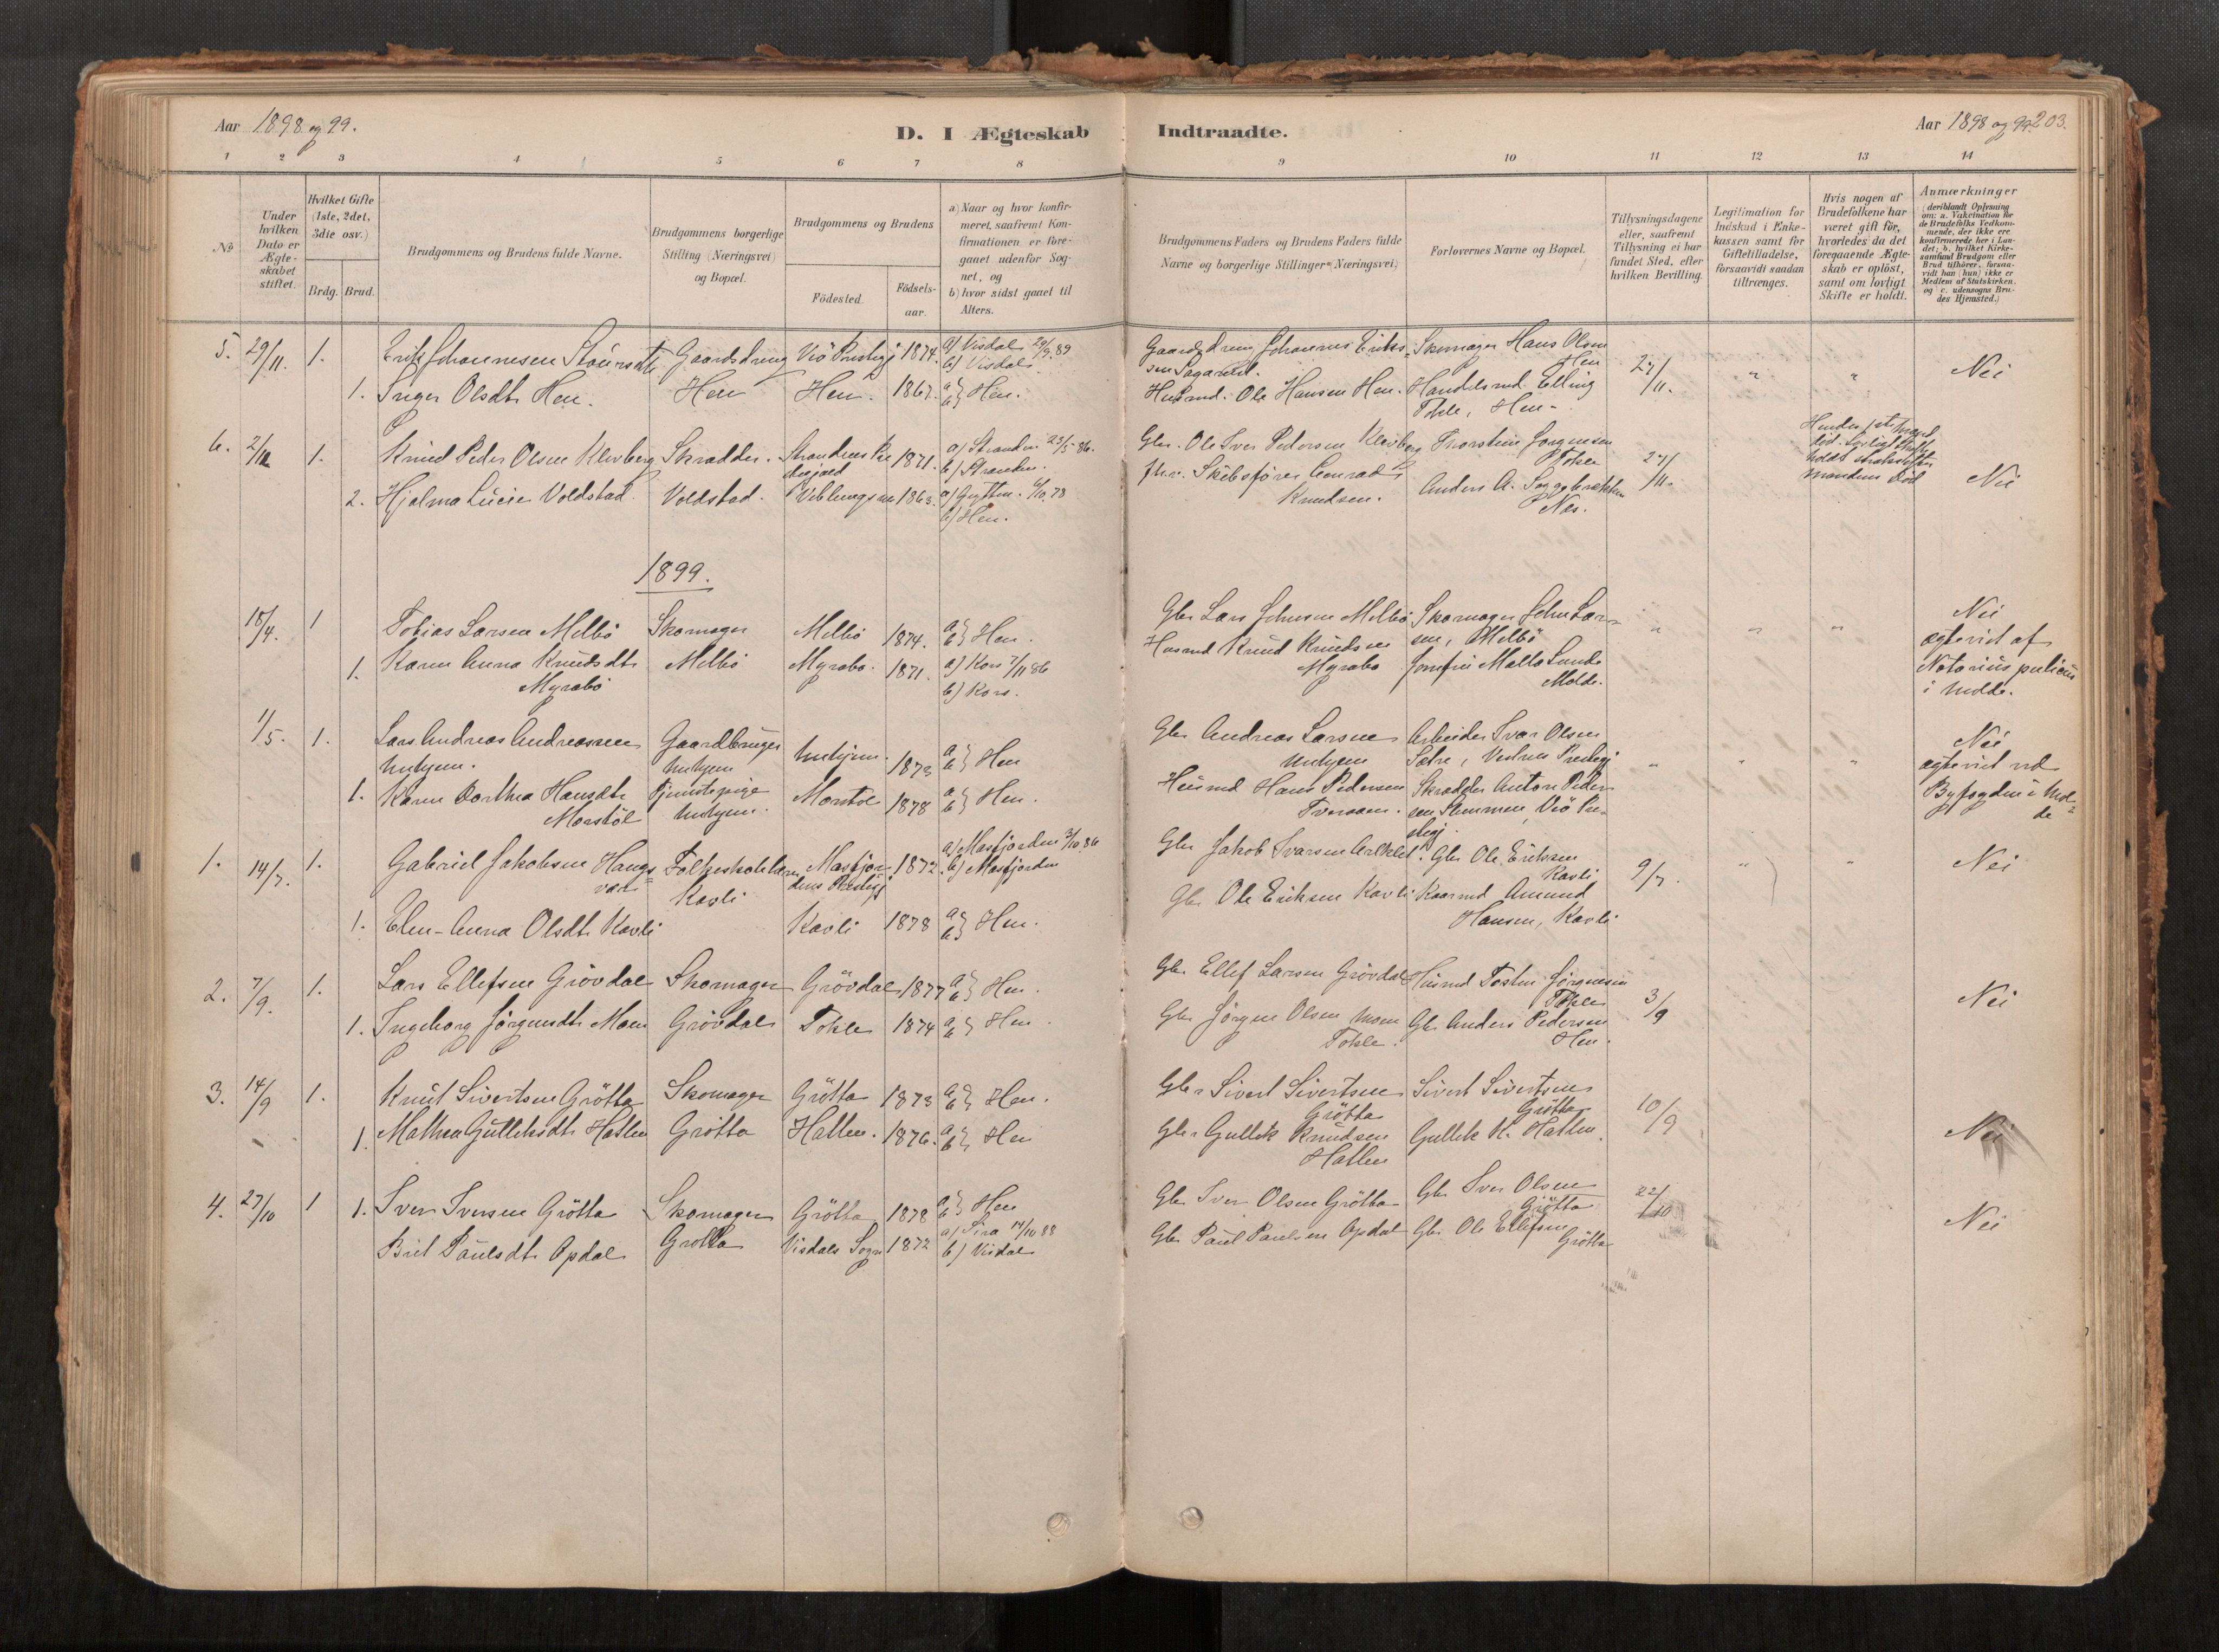 Aar 1898 og 99.
D. I Ægteskab Indtraadte.
Aar 1898 og 99. 203.
1 2 3 4 5 6 7 8 9 10 11 12 13 14
No
Under hvilken Dato er Ægteskabet stiftet.
Hvilket Gifte (1ste, 2det, 3die osv.)
Brdg. Brud.
Brudgommens og Brudens fulde Navne.
Brudgommens borgerlige Stilling (Næringsvei) og Bopæl.
Brudgommens og Brudens
Födested.
Födsels-aar.
a) Naar og hvor konfirmeret, saafremt Konfirmationen er foregaaet udenfor Sognet, og
b) hvor sidst gaaet til Alters.
Brudgommens Faders og Brudens Faders fulde Navne og borgerlige Stillinger (Næringsvei)
Forlovernes Navne og Bopæl.
Tillysningsdagene eller, saafremt Tillysning ei har fundet Sted, efter hvilken Bevilling.
Legitimation for Indskud i Enkekassen samt for Giftetilladelse, forsaavidt saadan tiltrænges.
Hvis nogen af Brudefolkene har været gift för, hvorledes da det foregaaende Ægteskab er oplöst, samt om lovligt Skifte er holdt.
Anmærkninger
(deriblandt Oplysning om: a. Vakcination for de Brudefolks Vedkommende, der ikke ere konfirmerede her i Landet; b. hvilket Kirkesamfund Brudgom eller Brud tilhörer, forsaavidt han (hun) ikke er Medlem af Statskirken, og c. udensogns Brudes Hjemsted.)
5. 29/11. 1. Erik Johannesen Gaardsdreng Viö Prstgj 1874. a) Visdal 29/9.89 b) Visdal
Gaardsdreng Johannes Eriks- Skomager Hans Olsen Hen 27/11. " " Nei
1. Inger Olsdtr Hen. Hen Hen. 1867. a b} Hen.
Husmd. Ole Hansen Hen. Handelsmd. Elling Tokle, Hen
6. 2/12 1. Knud Peder Olsen Klevberg Skrædder. 1871. a) Stranden 23/5 86. b) Stranden.
Gbr. Ole Iver Pedersen Klevberg Thorstein Jörgensen Tokle 27/11.
Hendes 1ste Mand död. Lovligt Skifte holdt Mandens Död Nei
2. Hjalma Lucie Voldstad Voldstad. Veblungsnes 1863. a) Grytten 6/10.78 b) Hen.
Skibsförer Conrad Knudsen. Anders A. Soggebrækken Nes.
1899.
18/4. 1 Tobias Larsen Melbö Skomager Melbö 1874. a b} Hen.
Gbr Lars Johnsen Melbö Skomager John Larsen, Melbö " " " Nei
1. Karen Anna Knudsdtr Myrabö Melbö Myrabö. 1871. a) Kors 7/11 86 b) Kors.
Husmd Knud Knudsen Myrabö Lunde Molde.
ægteviet af Notarius publicus i Molde.
1/5. 1. Lars Andreas Andreassen Unhjem. Gaardbruger Unhjem Unhjem. 1873 a b} Hen
Gbr Andreas Larsen Unhjem Arbeider Ivar Olsen Sætre, Vestnes Prestegj " " " Nei
1. Karen Dorthea Hansdtr Morstöl Tjenestepige Unhjem. Morstöl 1878 a b} Hen.
Husmd Hans Pedersen Skrædder Anton Pedersen Stemmen, Viö Prestegj.
ægteviet ved Byfogden i Molde
1. 14/7. 1. Gabriel Jakobsen Haugsvær Folkeskolelærer Kavli Masfjordens Prestegj 1872. a) Masfjorden 3/10.86 b) Masfjorden
Gbr Jakob Ivarsen Gbr Ole Eriksen Kavli 9/7. " " Nei
1. Elen-Anna Olsdtr Kavli Kavli 1878 a b} Hen.
Gbr Ole Eriksen Kavli Kaarmd Amund Hansen, Kavli
2. 7/9. 1. Lars Ellefsen Grövdal Skomager Grövdal 1877 a b} Hen.
Gbr Ellef Larsen Grövdal Husmd Tosten Jörgensen Tokle 3/9 Nei
1. Ingeborg Jörgensdtr Moen Grövdal Tokle 1874 a b} Hen.
Gbr Jörgen Olsen Moen Tokle. Gbr Anders Pedersen Hen.
3. 14/9 1. Knut Sivertsen Grötta Skomager Grötta 1873 a b} Hen.
Gbr Sivert Sivertsen Grötta Sivert Sivertsen Grötta 10/9 Nei
1. Mathea Gulleksdtr Hatlen Grötta Hatlen. 1876. a b} Hen
Gbr Gullek Knudsen Hatlen Gullek K. Hatlen.
4. 27/10 1 1. Iver Iversen Grötta Skomager Grötta 1878 a b} Hen
Gbr Iver Olsen Grötta Gbr Iver Olsen Grötta 22/10 Nei
Brit Paulsdtr Opdal Grötta Visdals Sogn 1872 a) Sira 14/10 88 b) Visdal
Gbr Paul Paulsen Opdal Gbr Ole Ellefsen Grötta